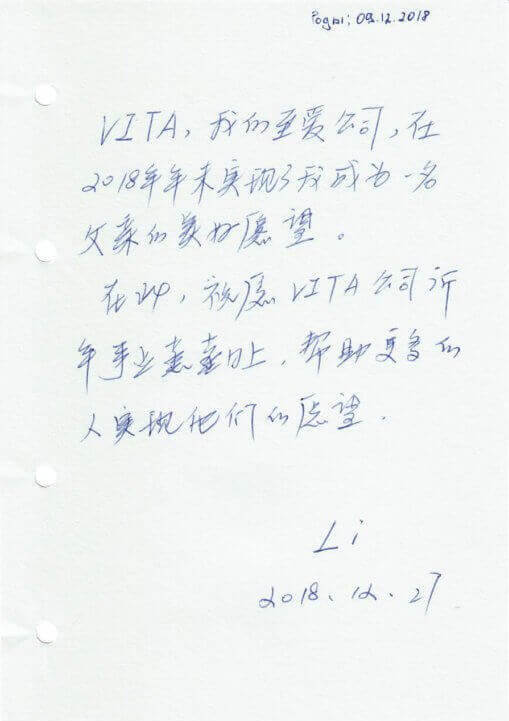 Роды; 09.12.2018
VITA，我们至爱公司，在
2018年年末实现了我成为一名
父亲的美好愿望。
在此，祝愿VITA公司新
年事业蒸蒸日上，帮助更多的
人实现他们的愿望．
Li
2018．12．27